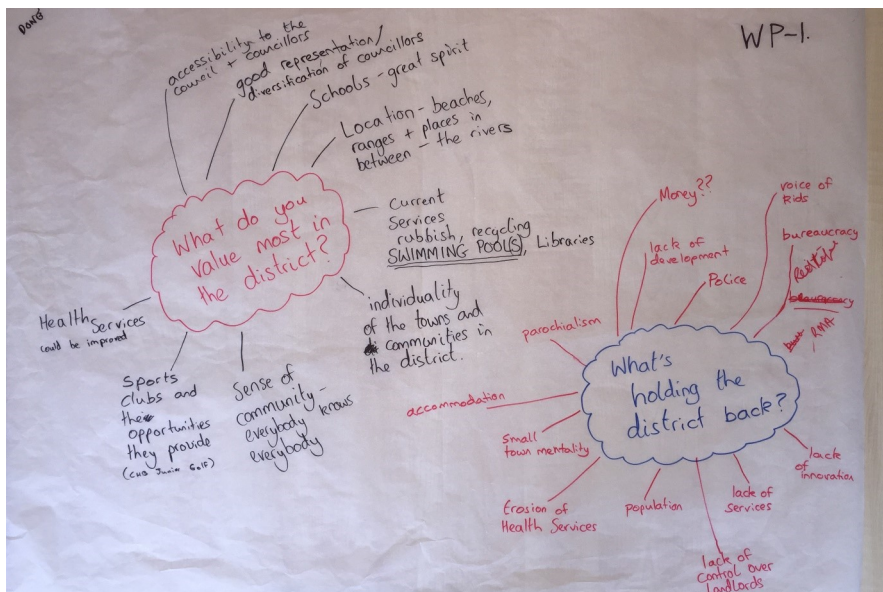 DONE
WP-1.
accessibility to the
council + councillors
good representation/
diversification of councillors
Schools - great spirit
Location - beaches,
ranges + places in
between - the rivers
What do you
value most in
the district?
Current
Services
rubbish, recycling
SWIMMING POOL(S), Libraries
individuality
of the towns and
communities in
the district.
Health Services
could be improved
Sports
clubs and
the
opportunities
they provide
(CHB Junior Golf)
Sense of
community -
everybody knows
everybody
What's
holding the
district back?
Money??
lack of
development
Police
voice of
kids
bureaucracy
RMA
parochialism
accommodation
small
town mentality
Erosion of
Health Services
population
lack of
control over
landlords
lack of
services
lack
of innovation